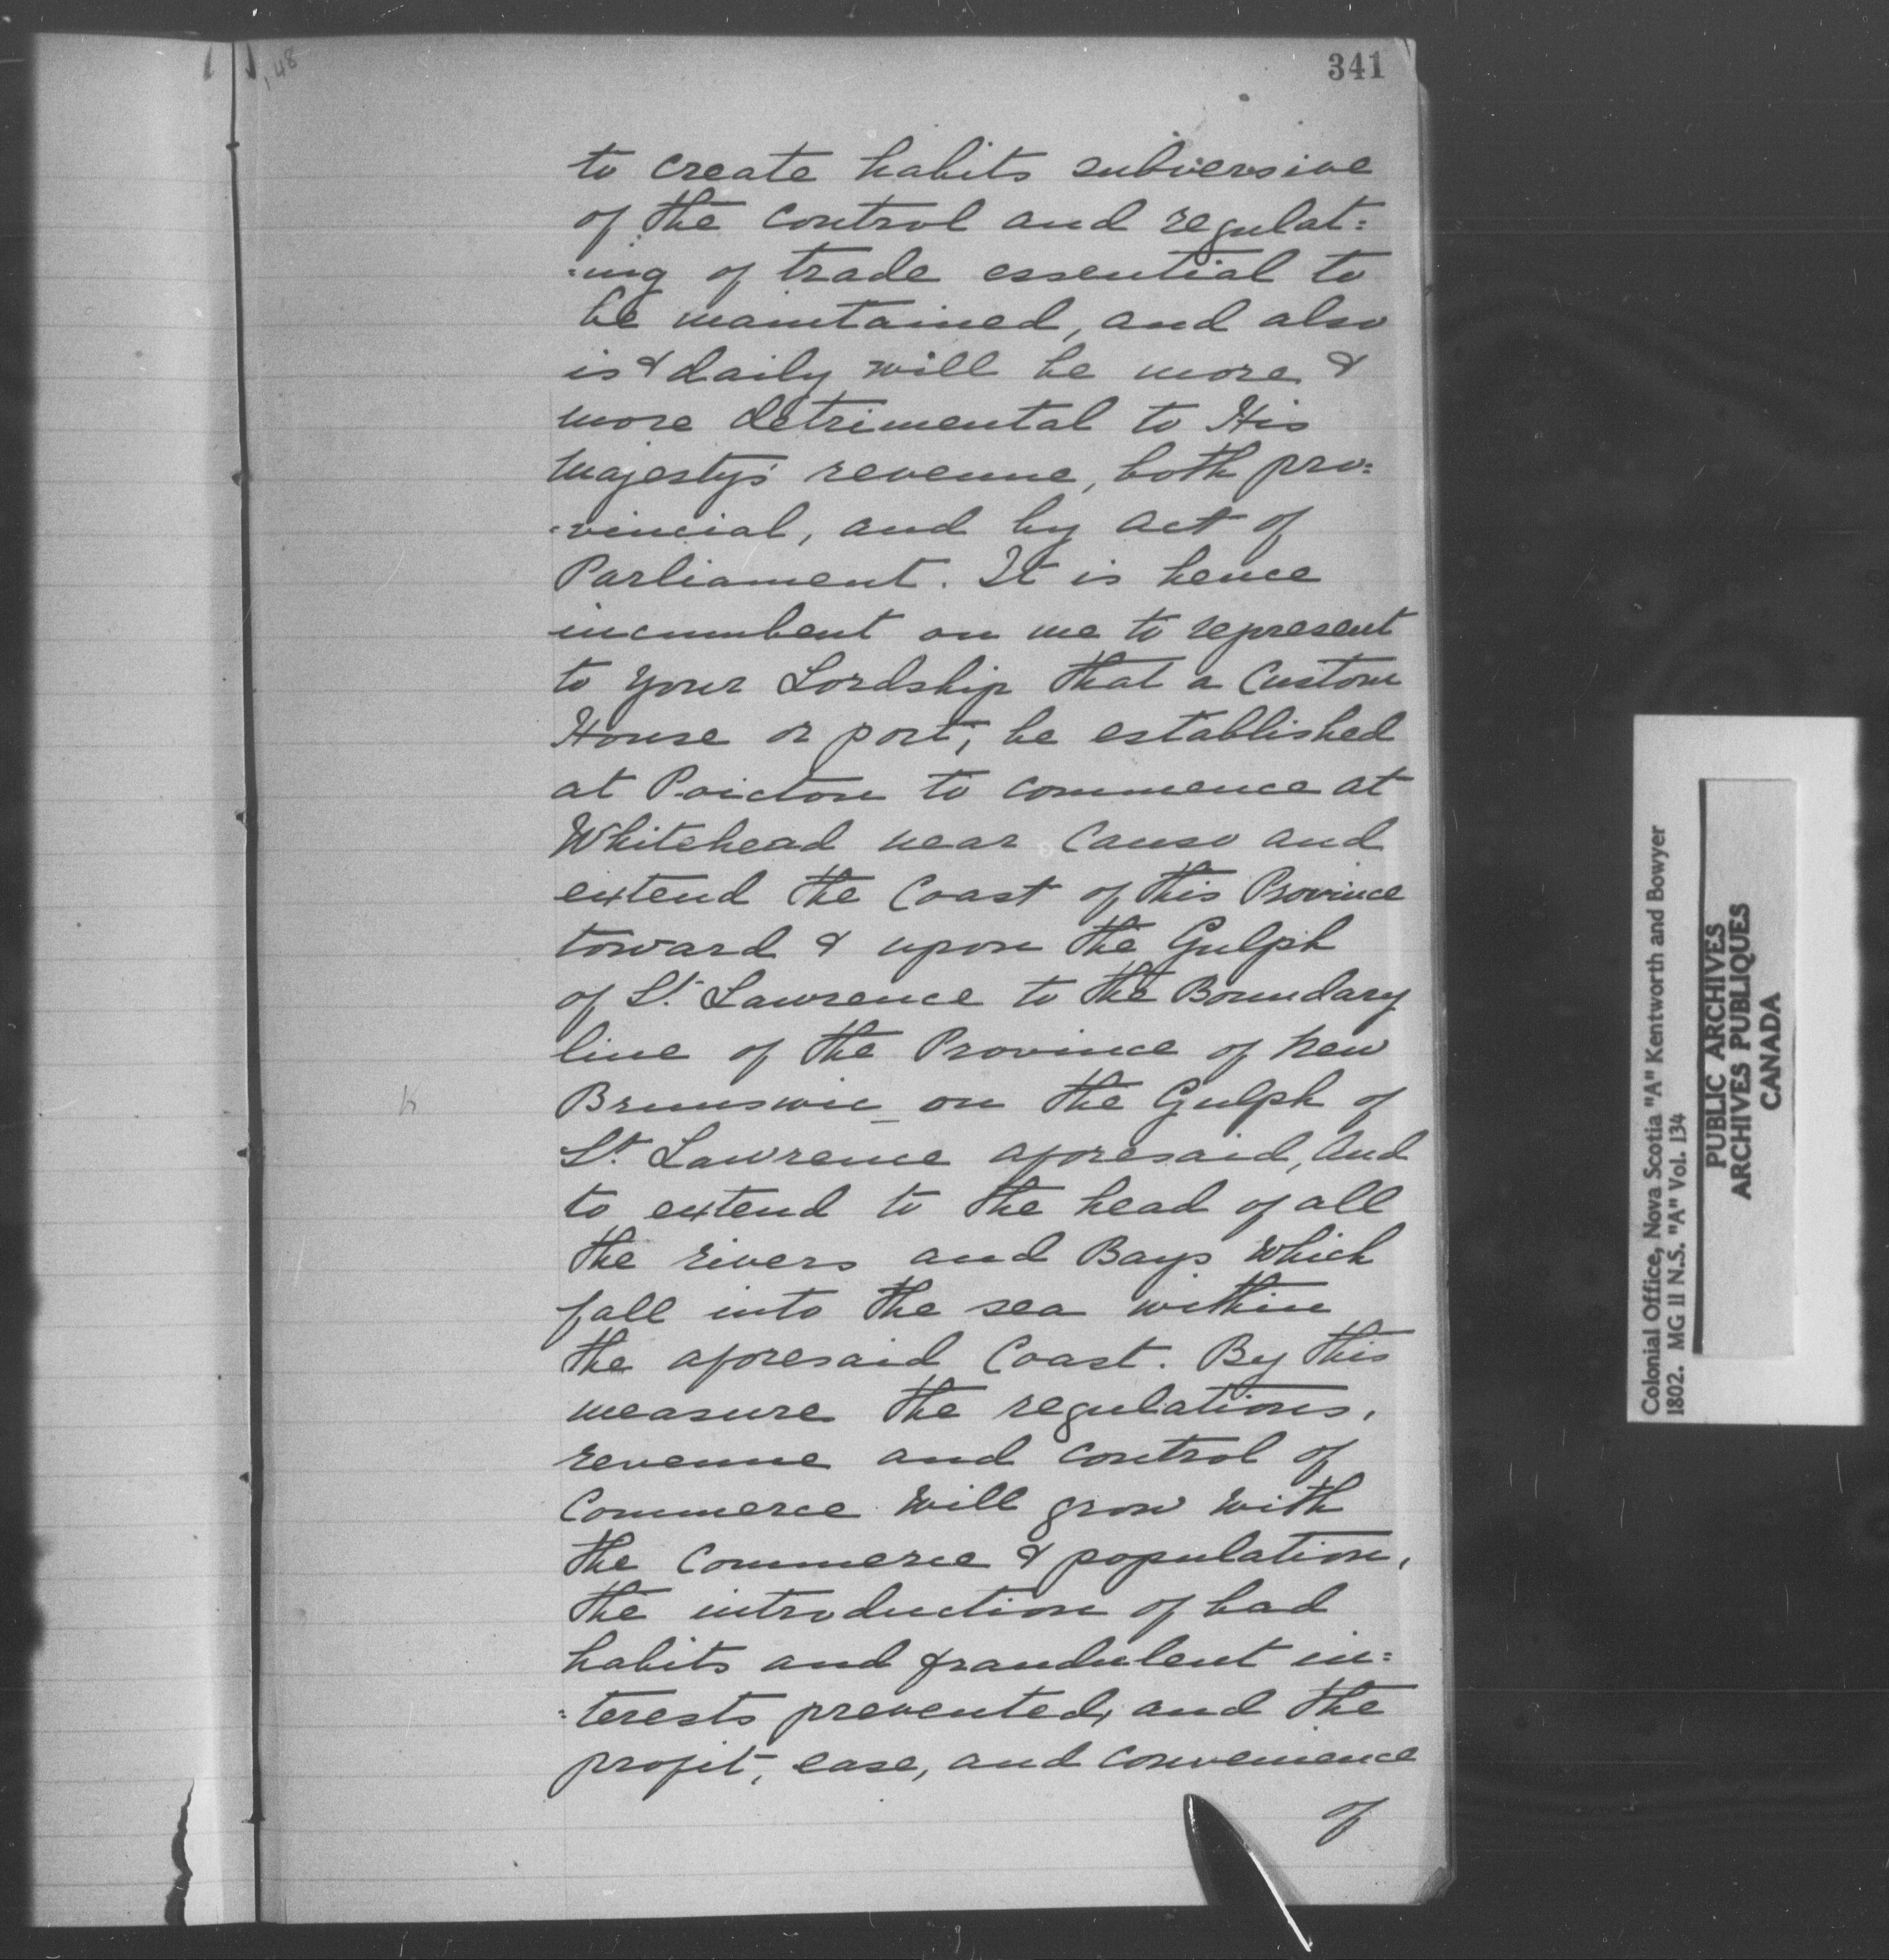 341
148
to create habits subversive
of the control and regulat:
:ing of trade essential to
be maintained, and also
is & daily will be more &
more detrimental to His
Majesty's revenue, both pro:
:vincial, and by act of
Parliament. It is hence
incumbent on me to represent
to your Lordship that a Custom
House or port, be established
at Poicton to commence at
Whitehead near Canso and
extend the Coast of this Province
toward & upon the Gulph
of St. Lawrence to the Boundary
line of the Province of New
h
Brunswic on the Gulph of
St. Lawrence aforesaid, and
to extend to the head of all
the rivers and Bays which
fall into the sea within
the aforesaid Coast. By this
measure the regulations,
revenue and control of
Commerce will grow with
the Commerce & population,
the introduction of bad
habits and fraudulent in:
:terests prevented, and the
profit, ease, and convenience
of
Colonial Office, Nova Scotia "A" Kentworth and Bowyer
1802. MG II N.S. "A" Vol. 134
PUBLIC ARCHIVES
ARCHIVES PUBLIQUES
CANADA